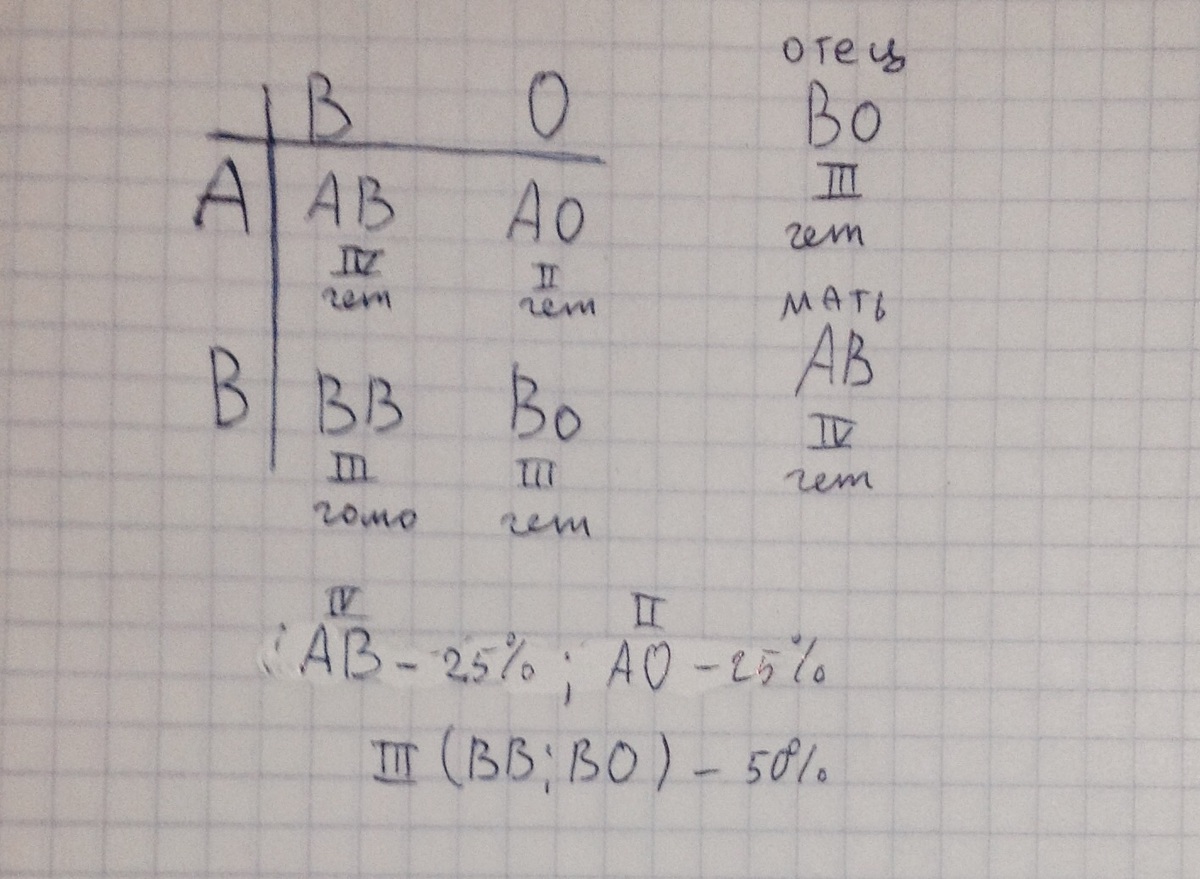 B O
A AB AO
IV II
гет гет
B BB BO
III III
гомо гет
отец
BO
III
гет
мать
AB
IV
гет
IV II
AB – 25% ; AO – 25%
III (BB; BO) – 50%